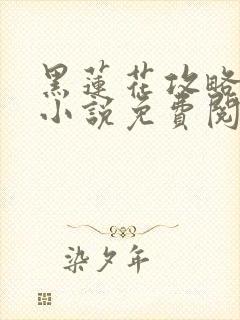 黑蓮花攻略
小說免費閱
染夕年